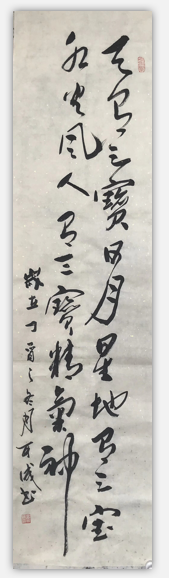 天有三寶日月星地有三宝
水火風人有三寶精氣神
歲在丁酉之冬月可成书